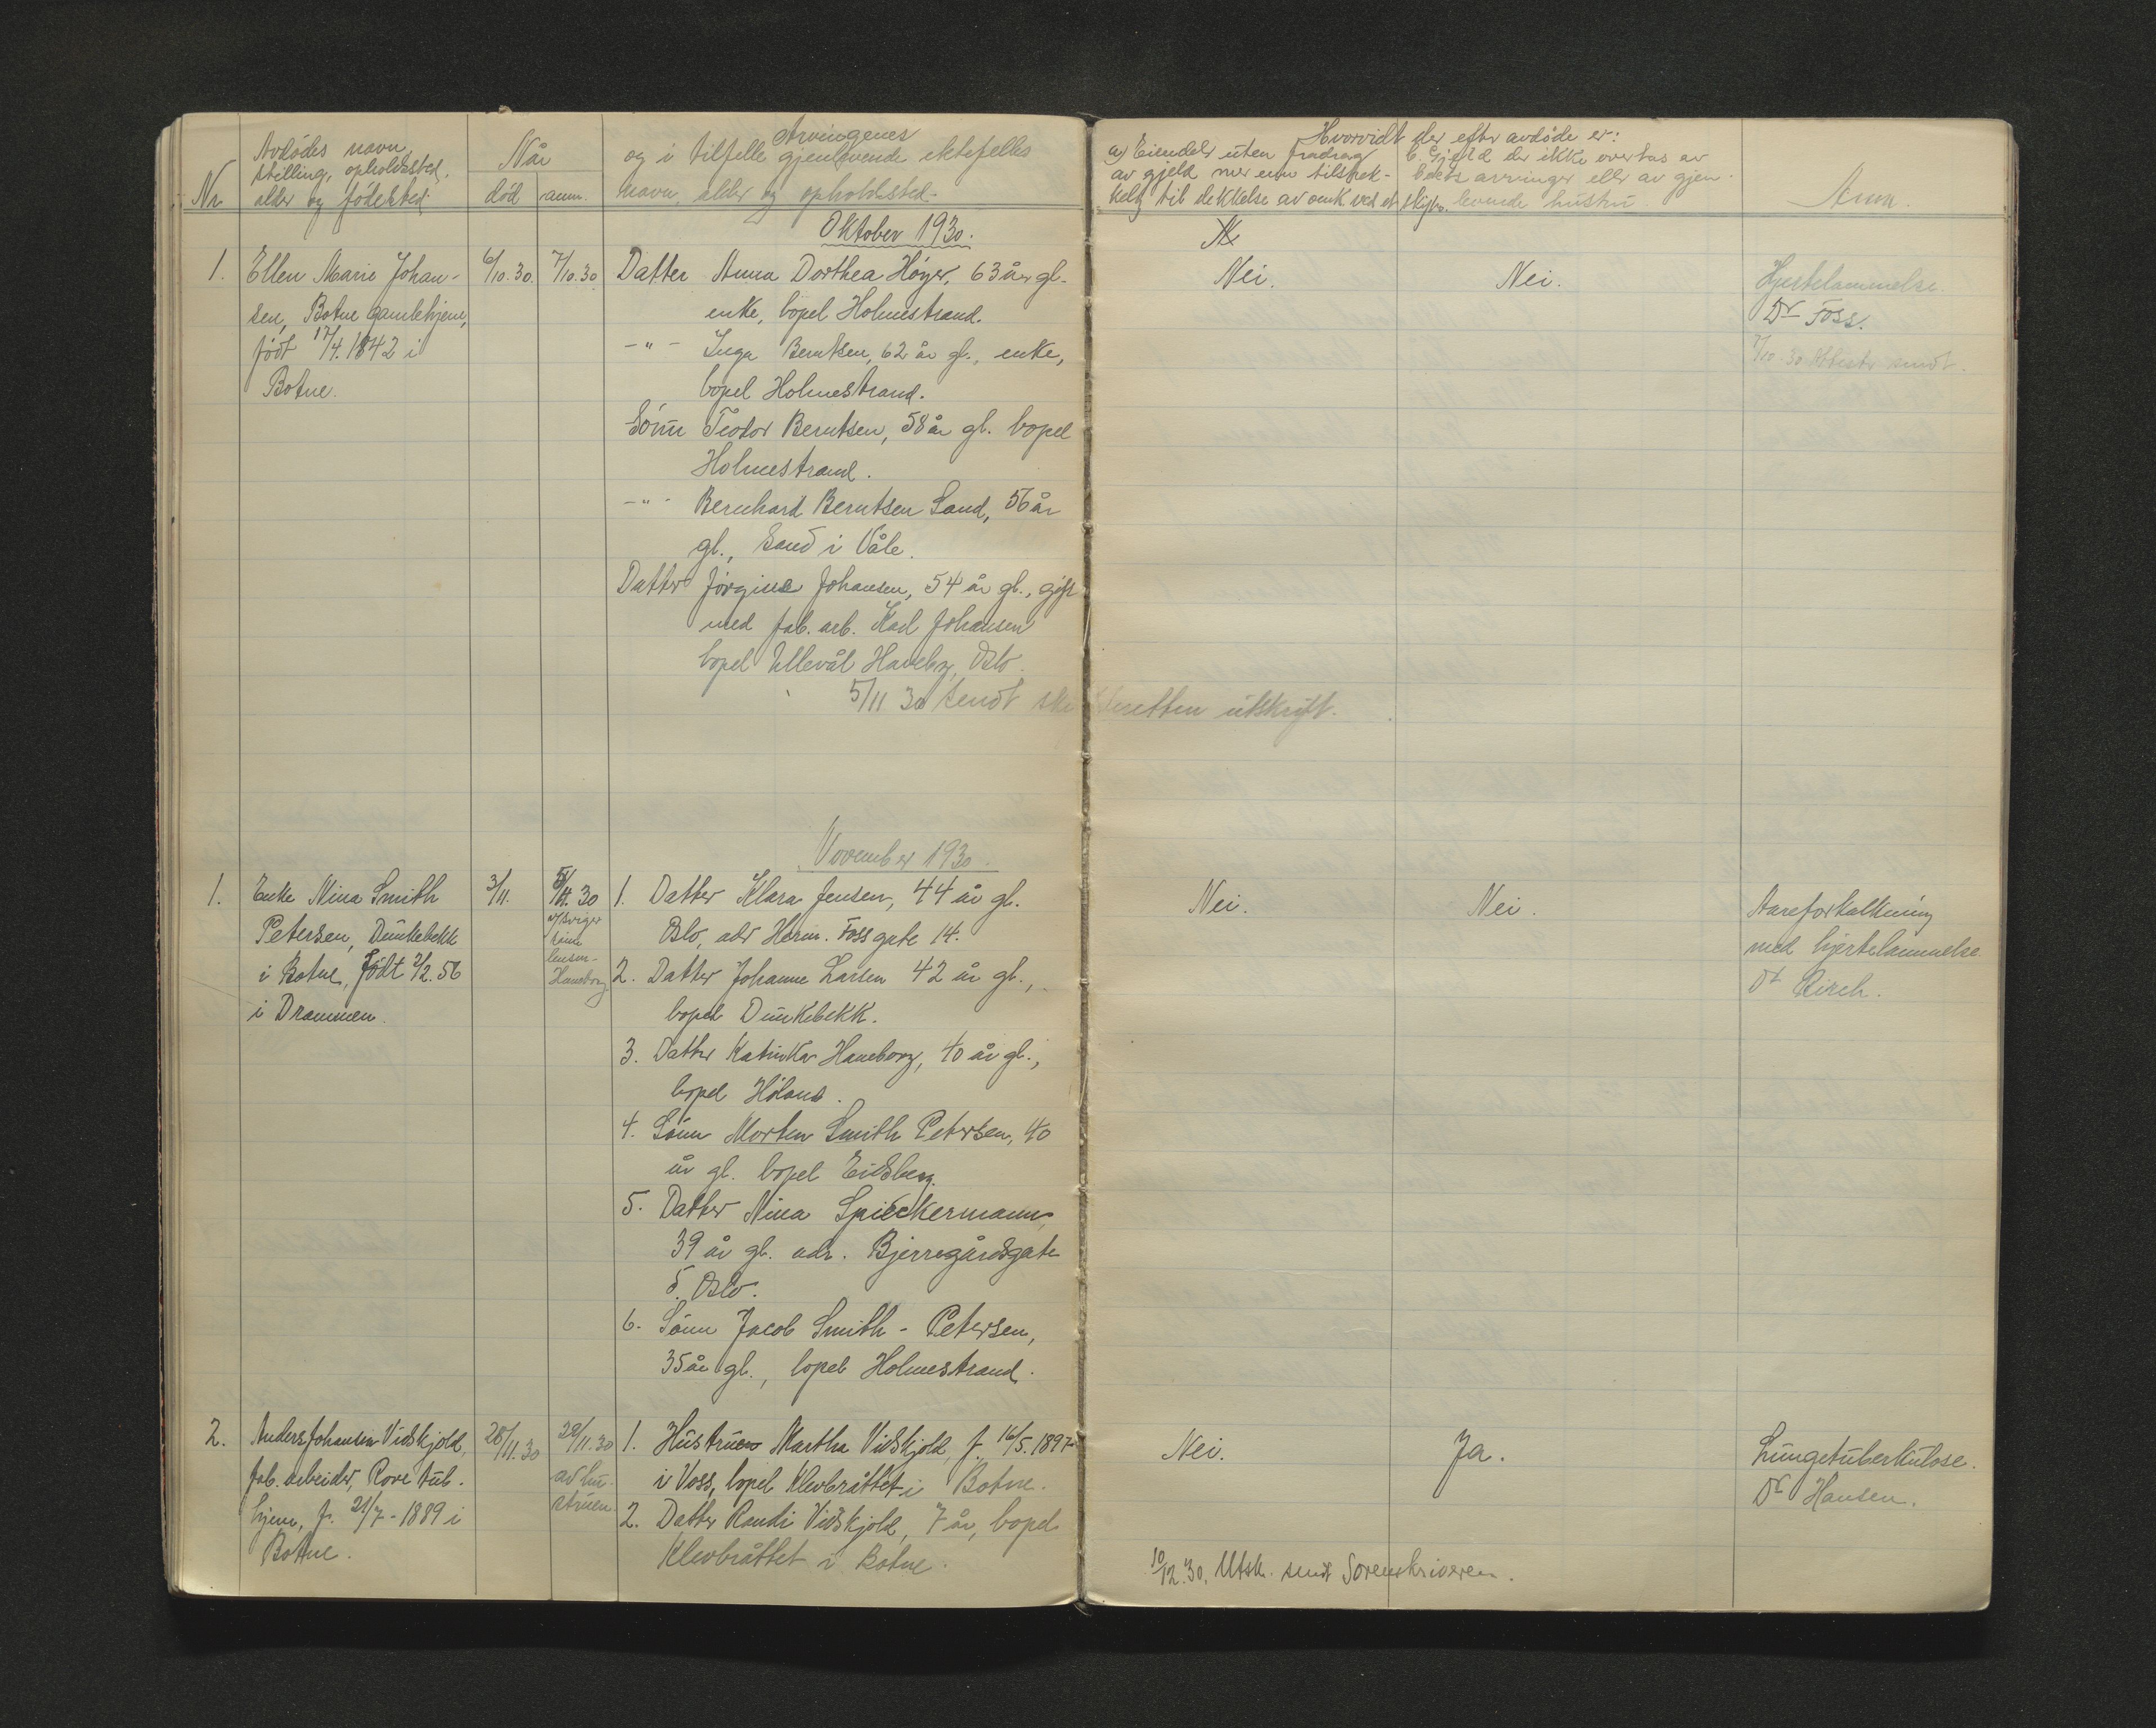 Avdødes navn,
stilling, opholdssted,
Nr. alder og fødested.
Når
død anm.
Arvingenes
og i tilfelle gjenlevende ektefelles
navn, alder og opholdssted.
Hvorvidt der efter avdøde er:
a) Eiendeler uten fradrag
av gjeld mer enn tilstrek-
kelig til dekkelse av omk ved et skifte.
b. Gjeld der ikke overtas av
arvinger eller av gjen-
levende hustru.
Anm.
Oktober 1930.
1. Ellen Marie Johan-
sen, Botne gamlehjem,
født 17/4. 1842 i
Botne.
6/10.30. 7/10.30
Datter Anna Dorthea Höyer, 63 år gl.
enke, bopel Holmestrand.
-"- Inga Berntsen, 62 år gl., enke,
bopel Holmestrand.
Sönn Teodor Berntsen, 58 år gl. bopel
Holmestrand.
-"- Bernhard Berntsen Sand, 56 år
gl., Sand i Våle.
Datter Jörgine Johansen, 54 år gl., gift
med fab. arb. Karl Johansen
bopel Ullevål Haveby, Oslo.
5/11 30 sendt skifteretten utskrift.
Nei. Nei. Hjertelammelse
Dr Foss.
7/10.30 Attest sendt.
November 1930.
1. Enke Nina Smith
Petersen, Dunkebekk
i Botne, födt 2/2. 56
i Drammen.
3/11. 5/11. 30
av sviger
sönn
Haneborg
1. Datter Klara Jensen, 44 år gl.
Oslo, adr Herm. Foss gate 14.
2. Datter Johanne Larsen 42 år gl.,
bopel Dunkebekk.
3. Datter Katinka Haneborg, 40 år gl.,
bopel Höland.
4. Sönn Morten Smith Petersen, 40
år gl. bopel Eidsberg.
5. Datter Nina Spieckermann,
39 år gl. adr. Bjerregårdsgate
5. Oslo.
6. Sönn Jacob Smith - Petersen,
35 år gl., bopel Holmestrand.
Nei. Nei. Aareforkalkning
med hjertelammelse.
Dr Kirch.
2. Anders Johansen Vidskjold,
fab. arbeider, Rove tub.
hjem, f. 21/7 - 1889 i
Botne.
28/11.30 29/11.30
av hu-
struen
1. Hustruen Martha Vidskjold, f. 16/5. 1897
i Voss, bopel Klevbråttet i Botne.
2. Datter Randi Vidskjold, 7 år, bopel
Klevbråttet i Botne.
Nei. Ja. Lungetuberkulose.
Dr Hansen.
10/12.30. Utsk. sendt Sorenskriveren.